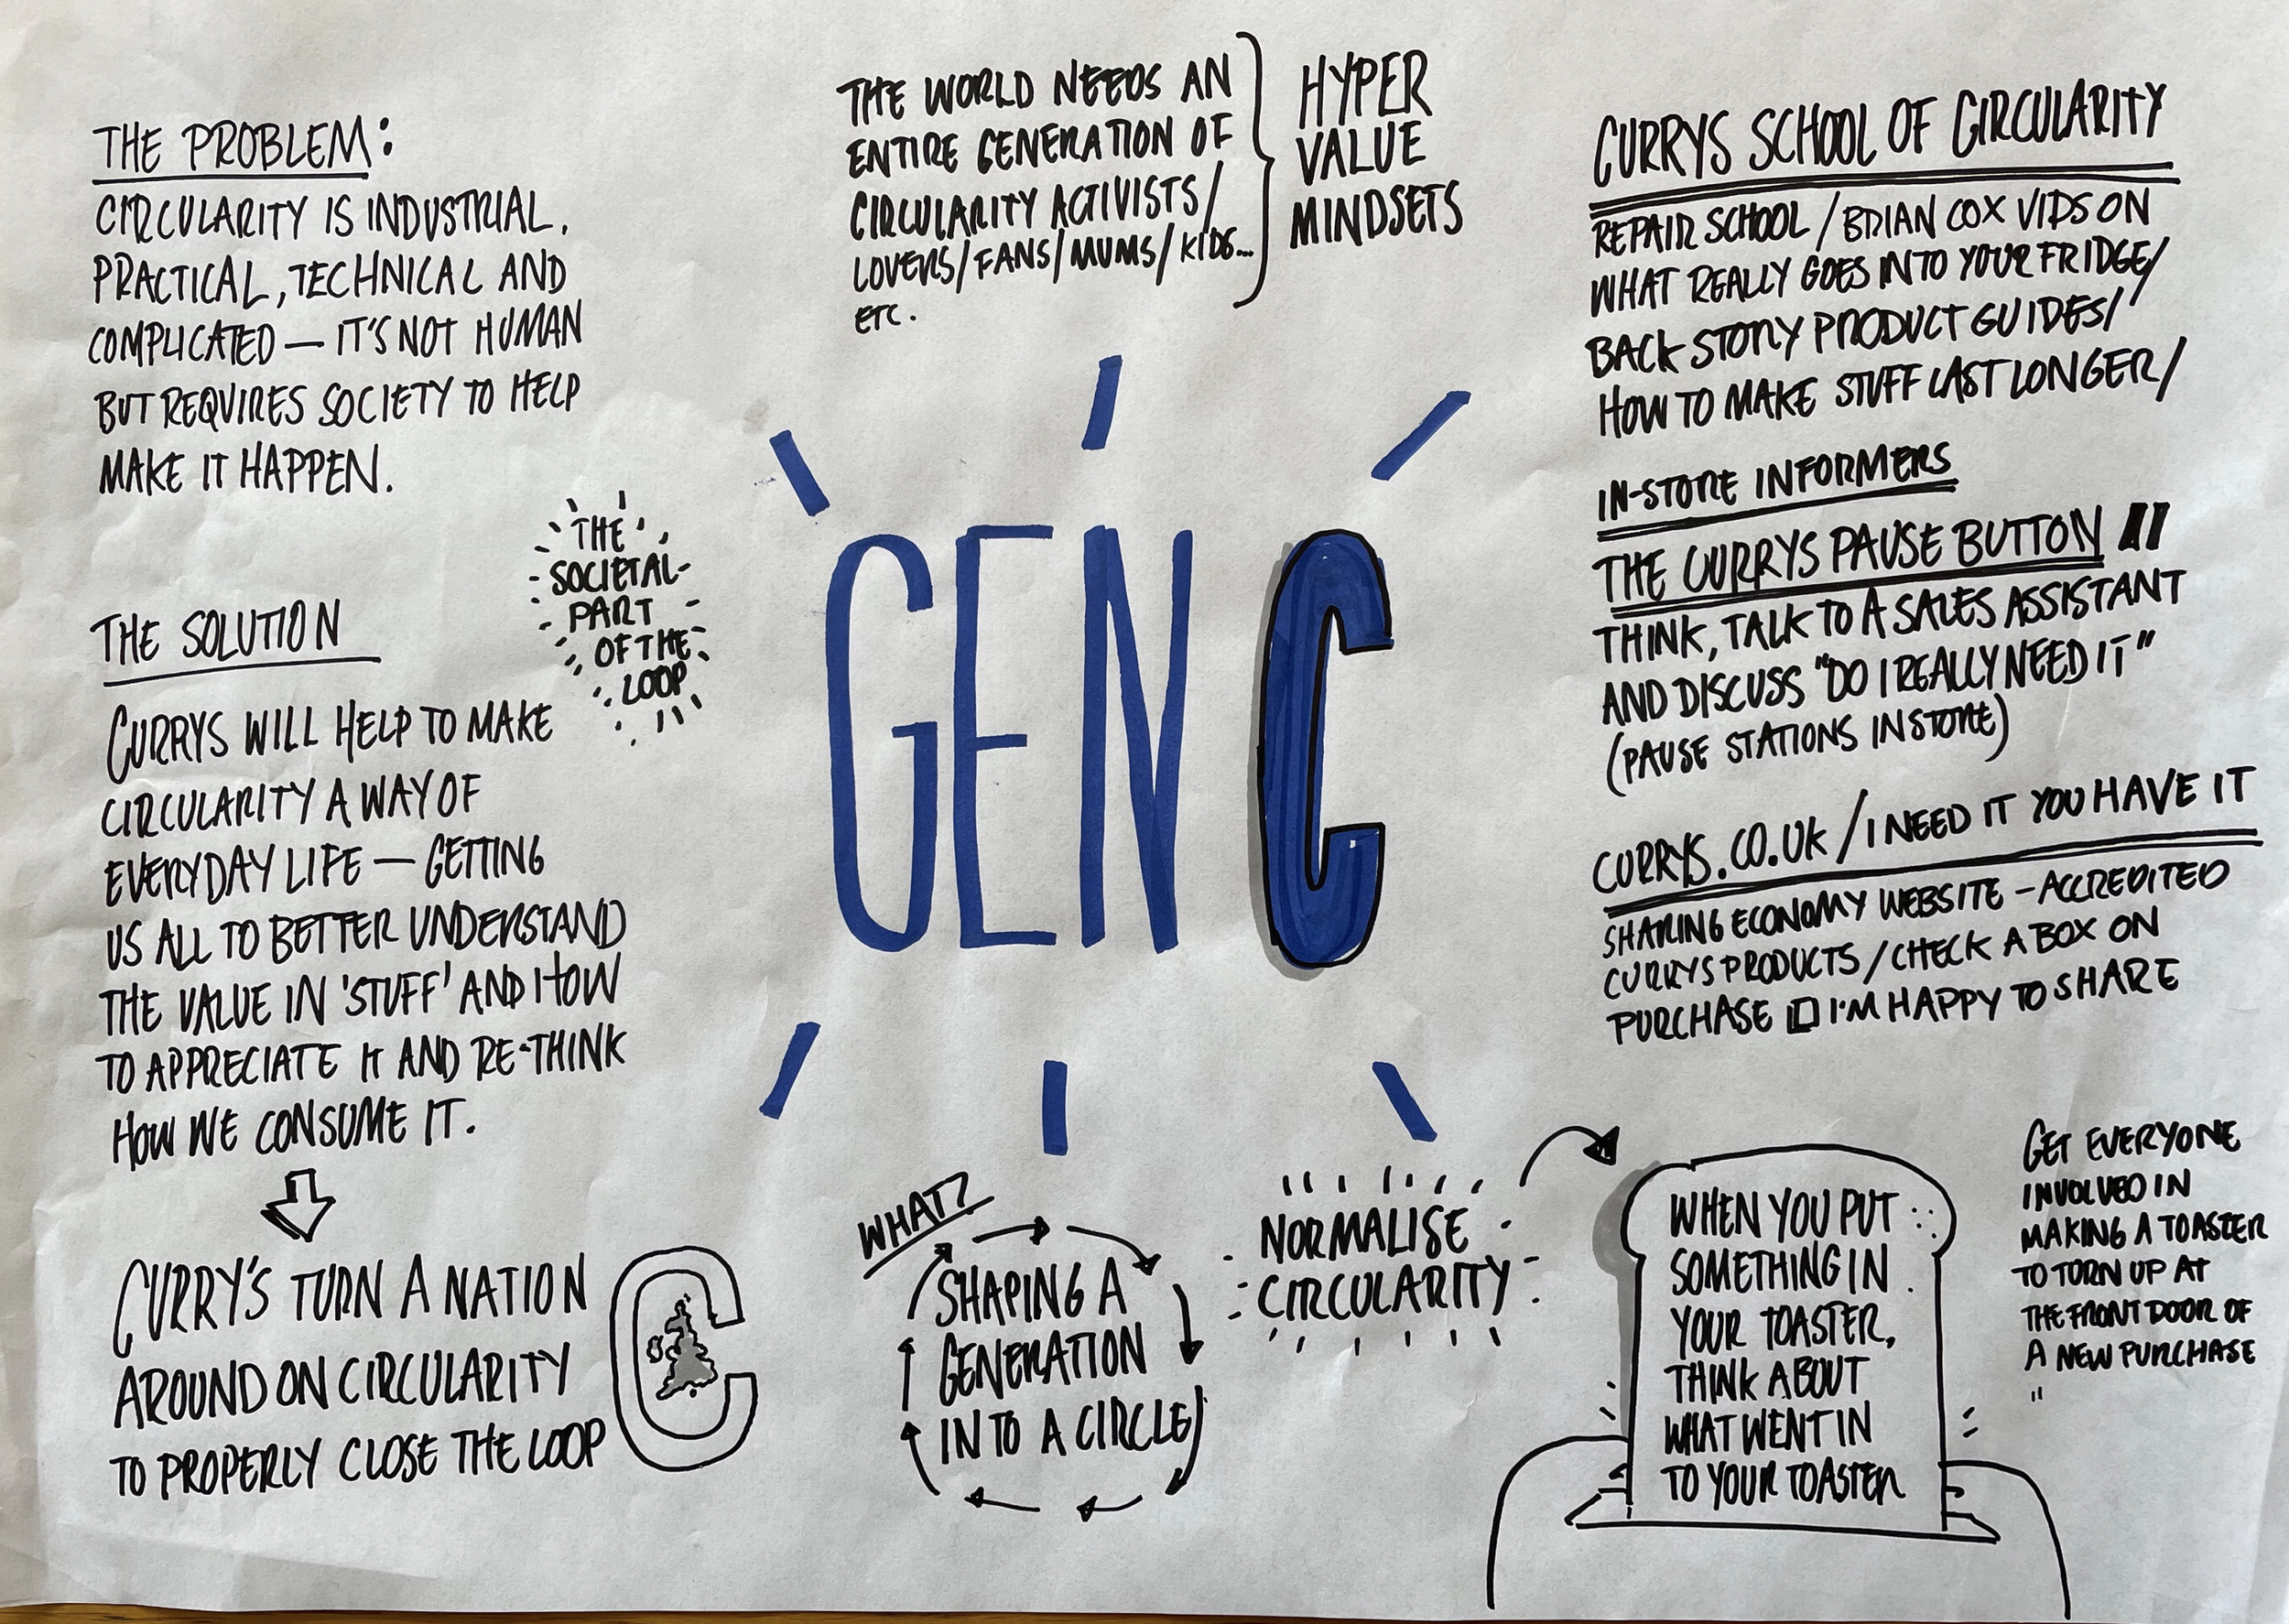 THE PROBLEM:
CIRCULARITY IS INDUSTRIAL,
PRACTICAL, TECHNICAL AND
COMPLICATED — IT'S NOT HUMAN
BUT REQUIRES SOCIETY TO HELP
MAKE IT HAPPEN.
THE
SOCIETAL
PART
OF THE
LOOP
THE SOLUTION
CURRYS WILL HELP TO MAKE
CIRCULARITY A WAY OF
EVERYDAY LIFE — GETTING
US ALL TO BETTER UNDERSTAND
THE VALUE IN 'STUFF' AND HOW
TO APPRECIATE IT AND RE-THINK
HOW WE CONSUME IT.
CURRY'S TURN A NATION
AROUND ON CIRCULARITY
TO PROPERLY CLOSE THE LOOP
THE WORLD NEEDS AN
ENTIRE GENERATION OF
CIRCULARITY ACTIVISTS/
LOVERS/FANS/MUMS/KIDS...
ETC.
HYPER
VALUE
MINDSETS
GEN C
WHAT?
SHAPING A
GENERATION
INTO A CIRCLE
NORMALISE
CIRCULARITY
CURRYS SCHOOL OF CIRCULARITY
REPAIR SCHOOL/BRIAN COX VIDS ON
WHAT REALLY GOES INTO YOUR FRIDGE/
BACK STORY PRODUCT GUIDES/
HOW TO MAKE STUFF LAST LONGER/
IN-STORE INFORMERS
THE CURRYS PAUSE BUTTON
THINK, TALK TO A SALES ASSISTANT
AND DISCUSS "DO I REALLY NEED IT"
(PAUSE STATIONS IN STORE)
CURRYS.CO.UK/I NEED IT YOU HAVE IT
SHARING ECONOMY WEBSITE – ACCREDITED
CURRYS PRODUCTS/CHECK A BOX ON
PURCHASE ☐ I'M HAPPY TO SHARE
WHEN YOU PUT
SOMETHING IN
YOUR TOASTER,
THINK ABOUT
WHAT WENT IN
TO YOUR TOASTER
GET EVERYONE
INVOLVED IN
MAKING A TOASTER
TO TURN UP AT
THE FRONT DOOR OF
A NEW PURCHASE
"